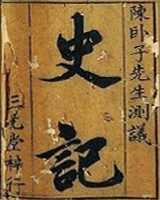 陳卧子先生測議
史記
三元堂梓行